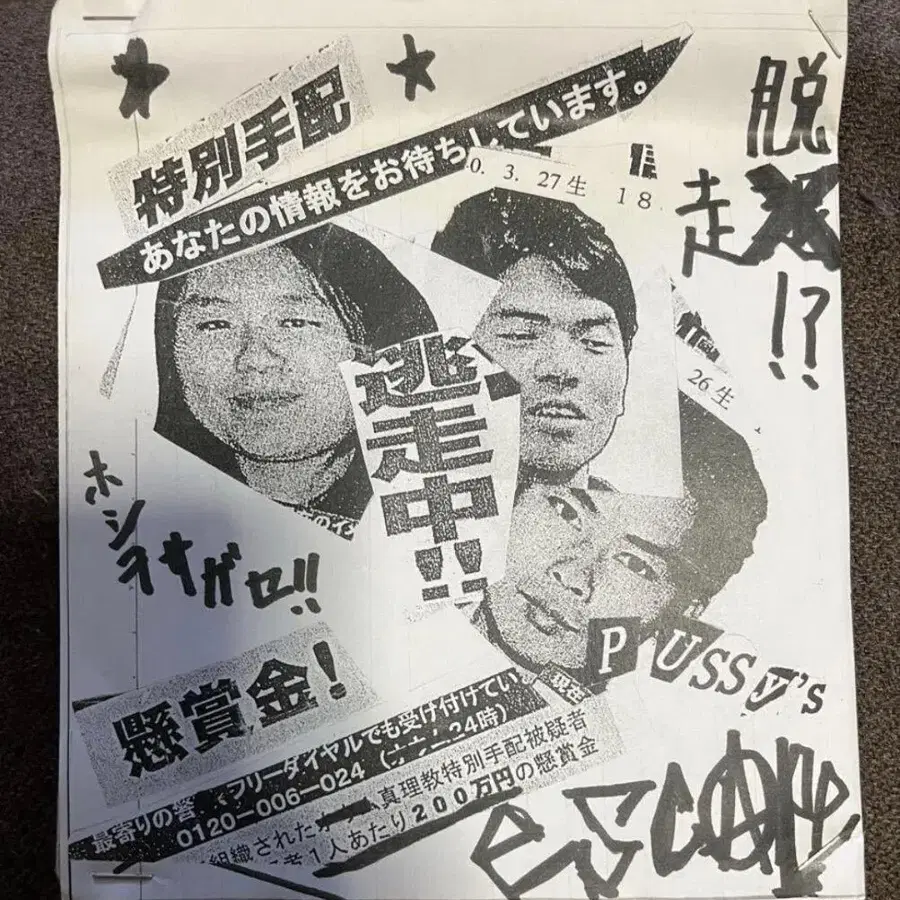 特別手配
あなたの情報をお待ちしています。
0. 3. 27生 18
脱
走
!?
26生
逃走中!!
のイ
ホシヲサガセ!!
PUSSy's
escApe
懸賞金!
現在
最寄りの警
フリーダイヤルでも受け付けてい
0120-006-024
24時)
組織された
真理教特別手配被疑者
者1人あたり200万円の懸賞金